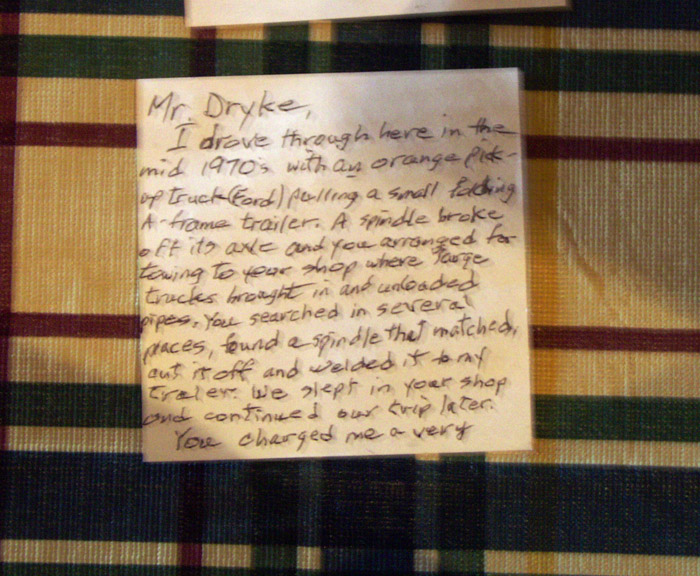 Mr. Dryke,
I drove through here in the
mid 1970's with an orange pick-
up truck (Ford) pulling a small folding
A-frame trailer. A spindle broke
off its axle and you arranged for
towing to your shop where large
trucks brought in and unloaded
pipes. You searched in several
places, found a spindle that matched,
cut it off and welded it to my
trailer. We slept in your shop
and continued our trip later.
You charged me a very